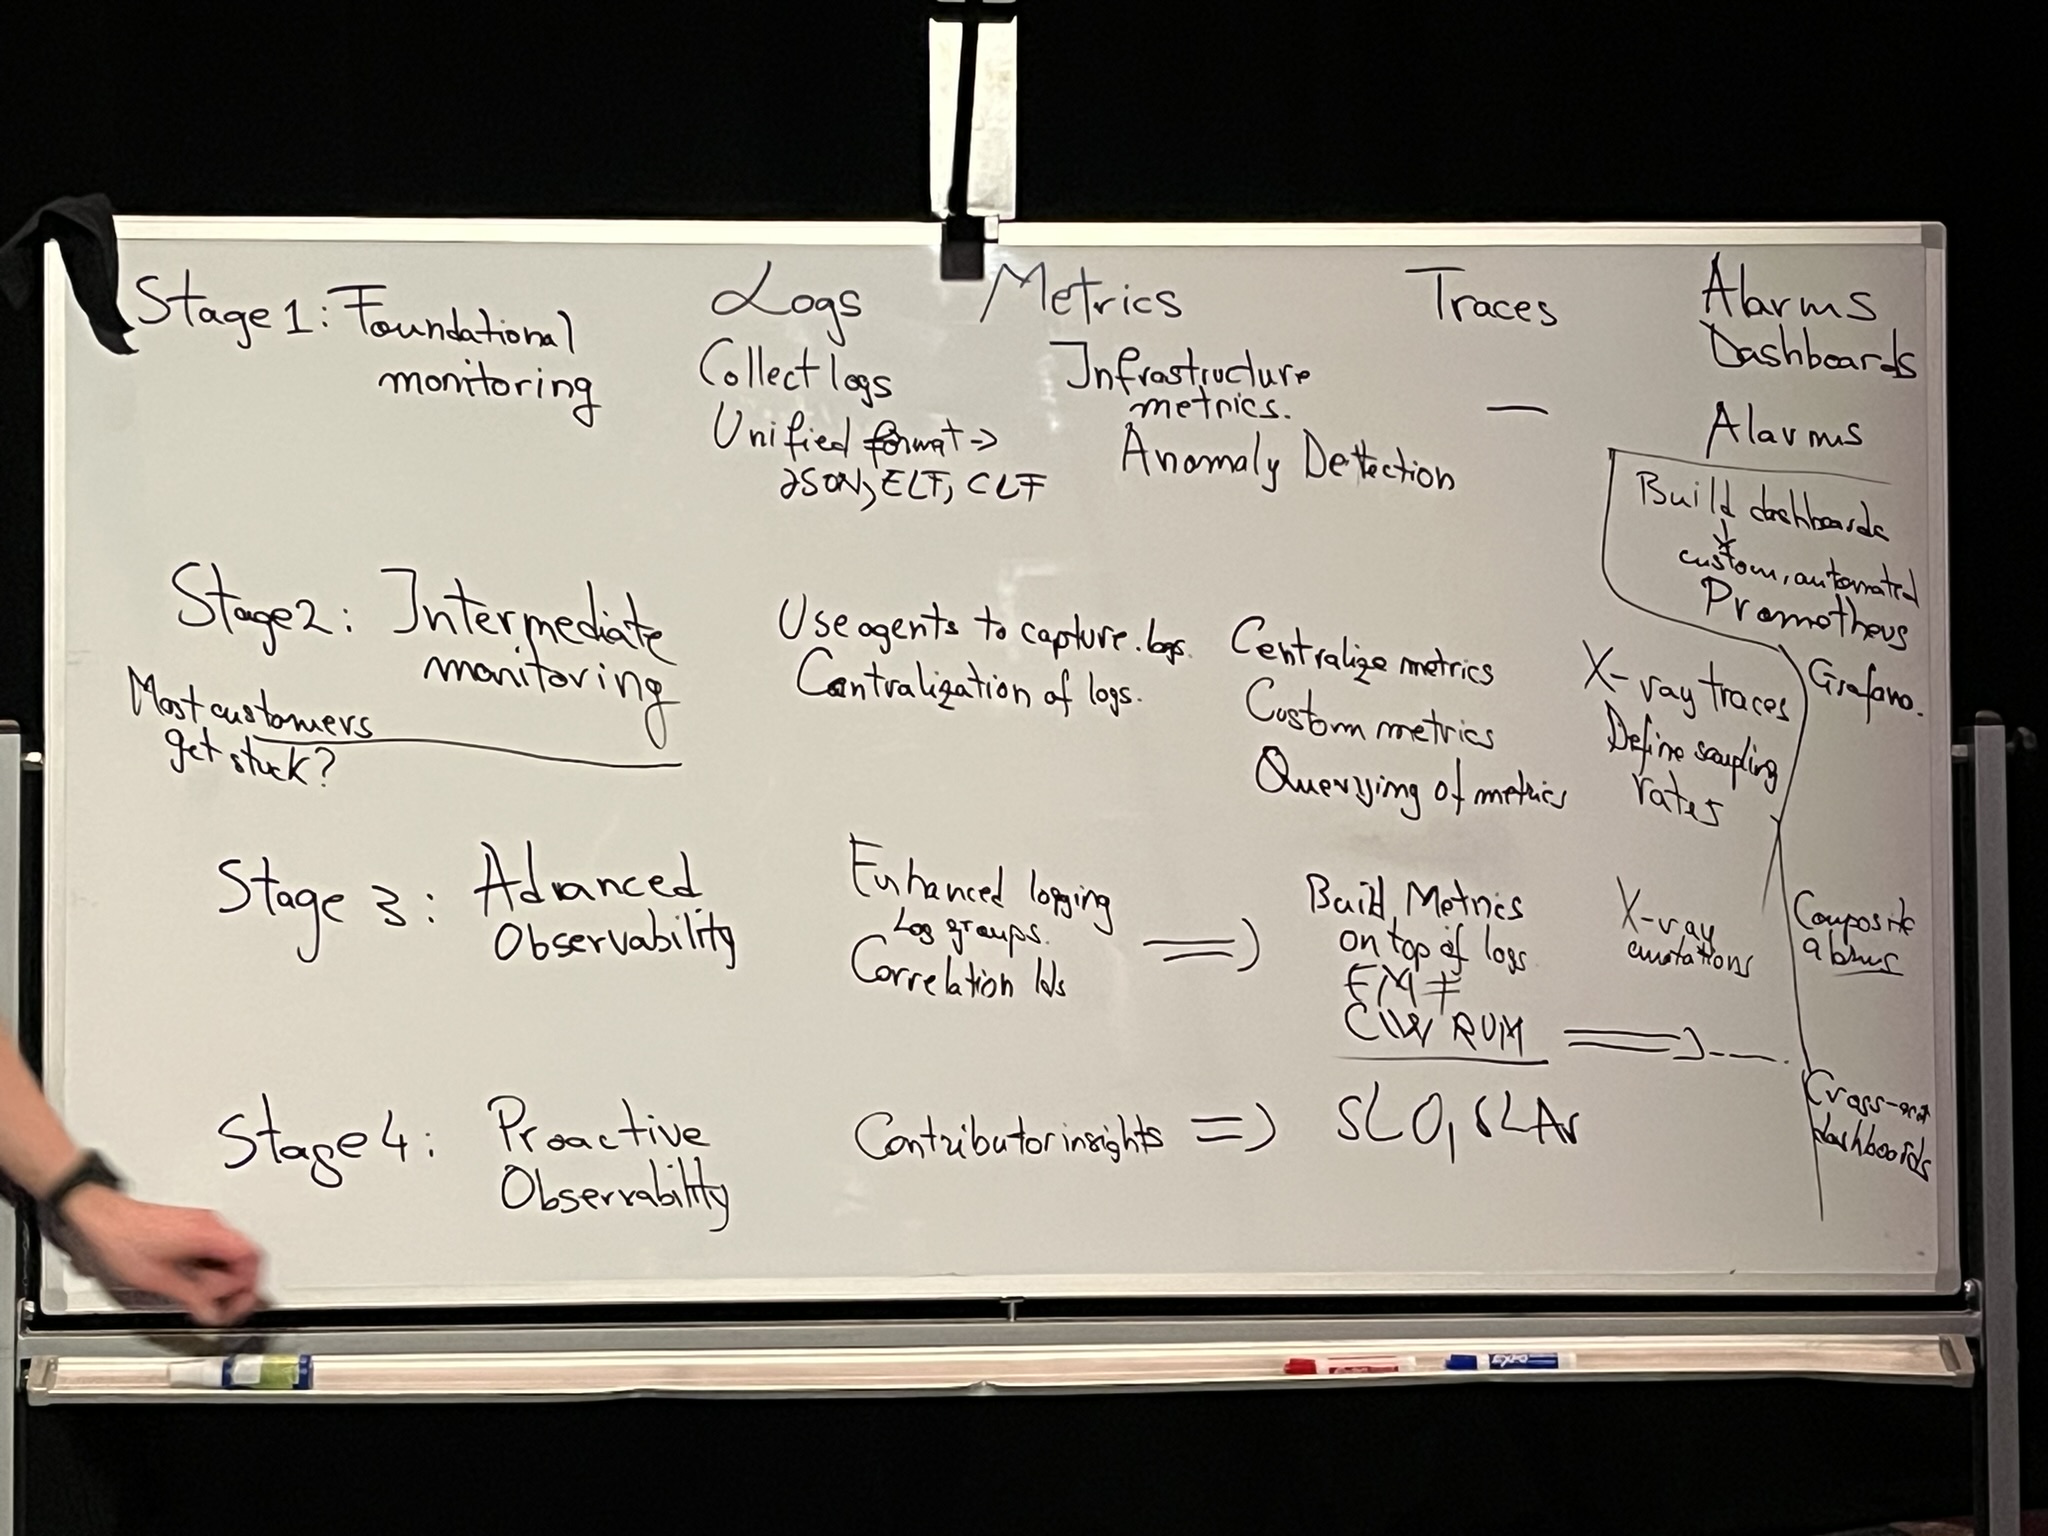 Stage 1: Foundational
monitoring
Logs
Collect logs
Unified format ->
JSON, ELF, CLF
Metrics
Infrastructure
metrics.
Anomaly Detection
Traces
—
Alarms
Dashboards
Alarms
Build dashboards
custom, automated
Prometheus
Grafana.
Stage 2: Intermediate
monitoring
Most customers
get stuck?
Use agents to capture logs.
Centralization of logs.
Centralize metrics
Custom metrics
Querying of metrics
X-ray traces
Define sampling
rates
Stage 3: Advanced
Observability
Enhanced logging
Log groups.
Correlation Ids
=>
Build Metrics
on top of logs
EMF
CW RUM
=>
X-ray
anotations
Composite
alarms
Stage 4: Proactive
Observability
Contributor insights => SLO, SLAs
Cross-acct
dashboards